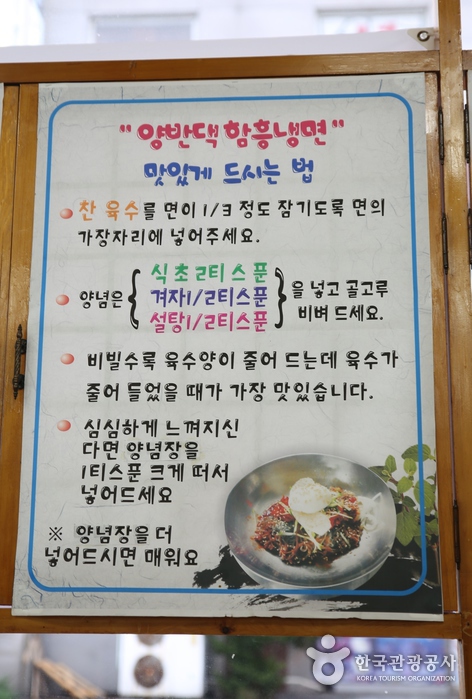 "양반댁 함흥냉면"
맛있게 드시는 법
찬 육수를 면이 1/3 정도 잠기도록 면의
가장자리에 넣어주세요.
양념은 { 식초 2티스푼
겨자 1/2티스푼
설탕 1/2티스푼 } 을 넣고 골고루
비벼 드세요.
비빌수록 육수양이 줄어 드는데 육수가
줄어 들었을 때가 가장 맛있습니다.
심심하게 느껴지신
다면 양념장을
1티스푼 크게 떠서
넣어드세요
※ 양념장을 더
넣어드시면 매워요
한국관광공사
KOREA TOURISM ORGANIZATION